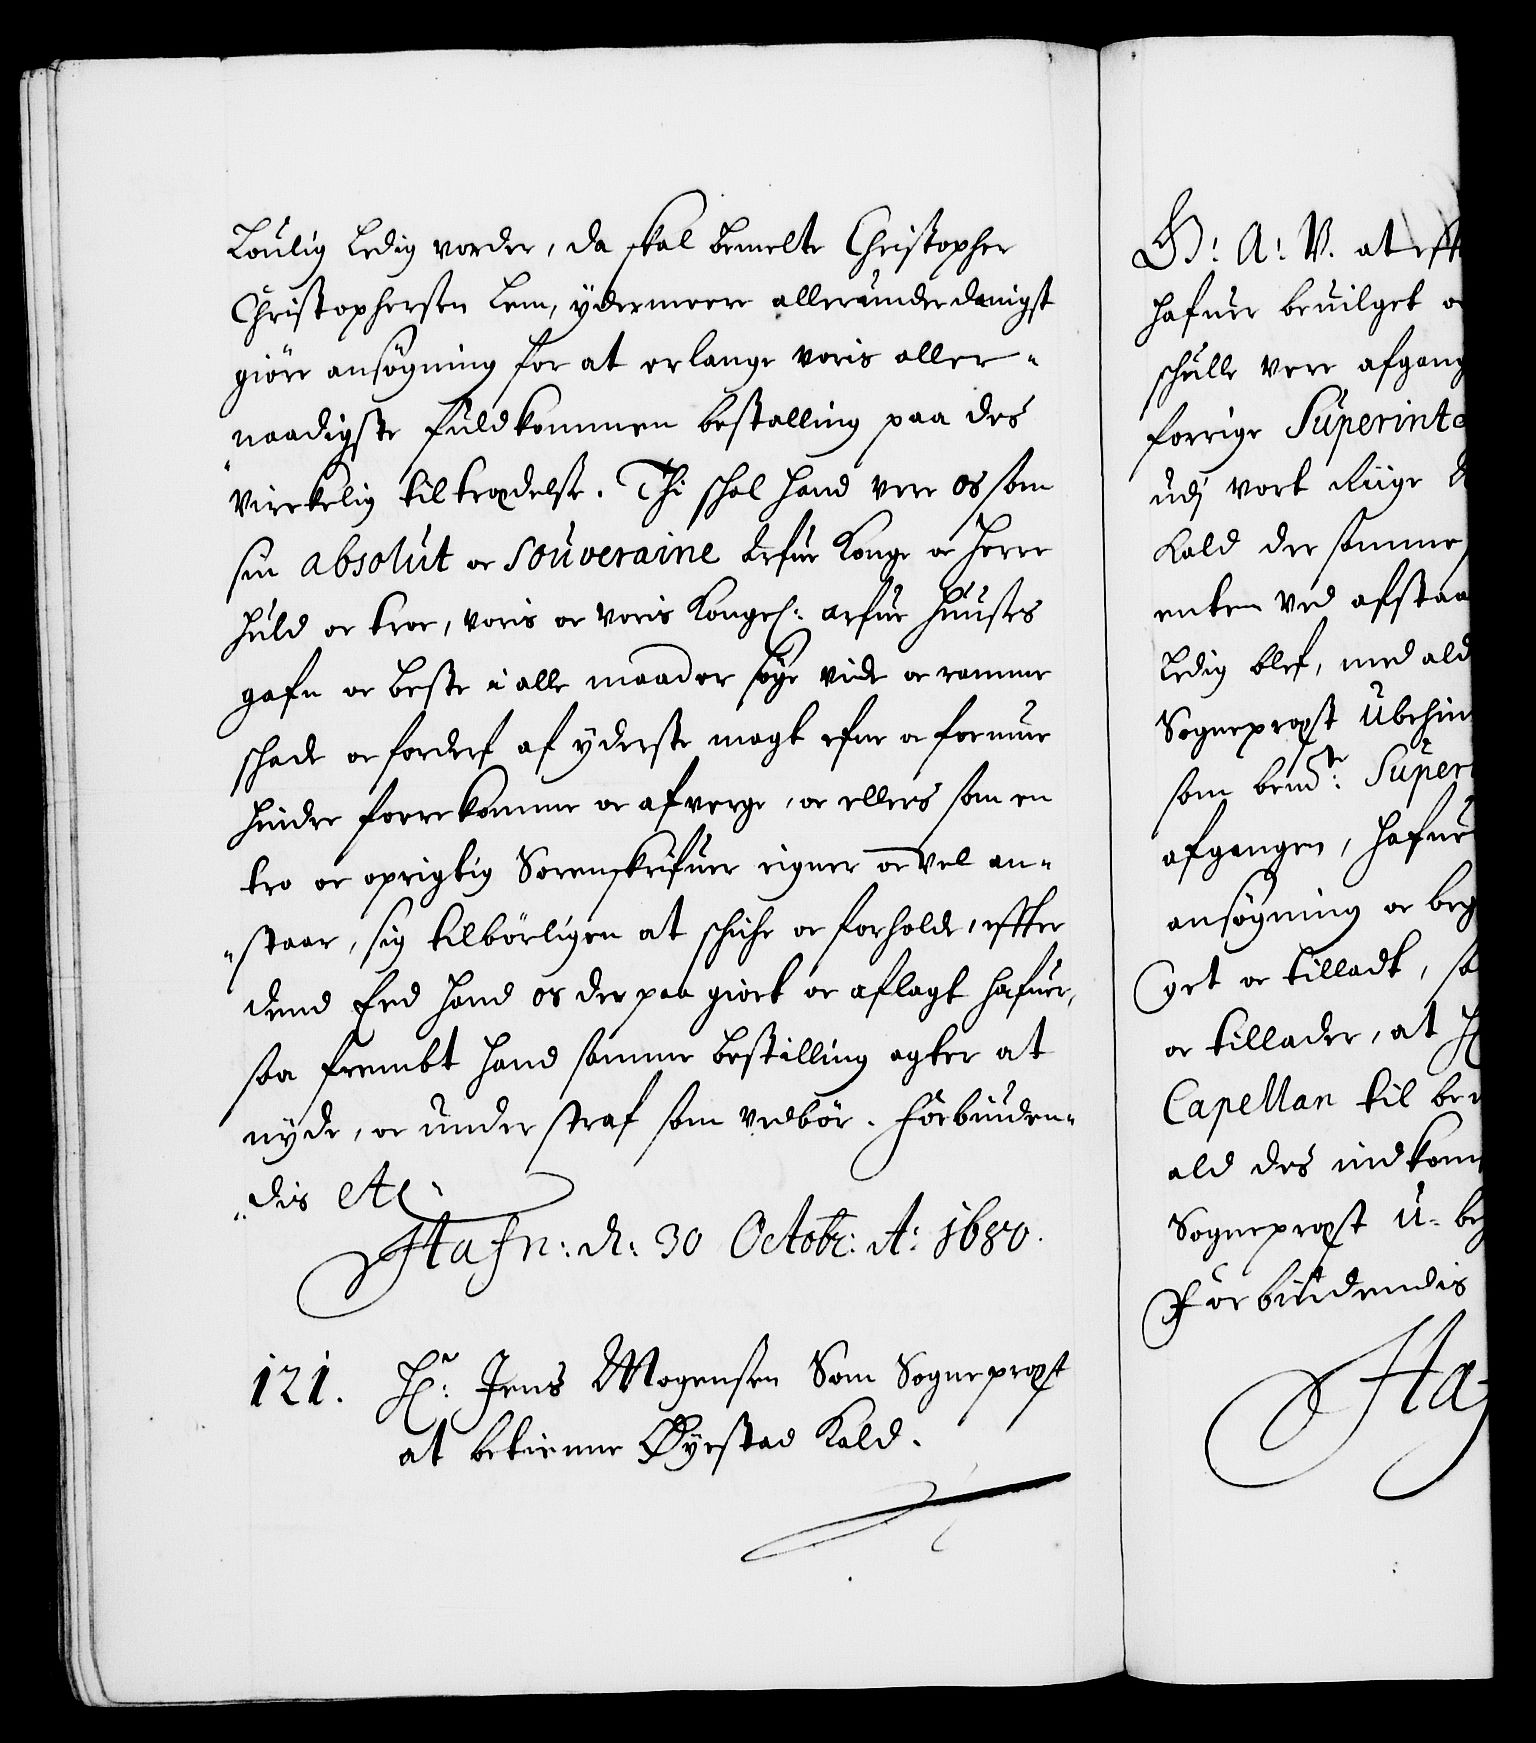 Loulig Ledig vorder, da skal bemelte Christopher
Christophersen Lem, ydermeere allerunderdanigst
giöre ansögning for at erlange voris aller-
naadigste fuldkommen bestalling paa des
virkelig tiltrædelse. Thi schal hand vere os som
sin absolut oc souveraine Arfue Konge oc Herre
huld oc troe, voris oc voris Kongel: arfue Huuses
gafn oc beste i alle maader söge vide oc ramme
schade oc forderf af yderste magt efne oc formue
hindre forrekomme oc afverge, oc ellers som en
tro oc oprigtig Sorenskrifuer eigner oc vel an-
staar, sig tilbörligen at schiche oc forholde, effter
dend Eed hand os der paa giort oc aflagt hafuer,
saa frembt hand samme bestilling agter at
nyde, oc under straf som vedbör. Forbiuden-
dis etc.
Hafn: d: 30 Octobr: A: 1680.
121. Hr: Jens Mogensen Som Sognepræst
at betienne Øyestad Kald.
G: A: V. at efft
hafuer beuilget oc
schulle vere afgang
forrige Superinte
udj vort Riige
Kald der samme
enten ved afstaa
Ledig blef, med ald
Sognepræst Ubehin
som bemte: Super
afgangen, hafuer
ansögning oc beg
get oc tilladt, sa
oc tillader, at H
Capellan til be
ald des indkom
Sognepræst U-be
Forbiudendis
Haf